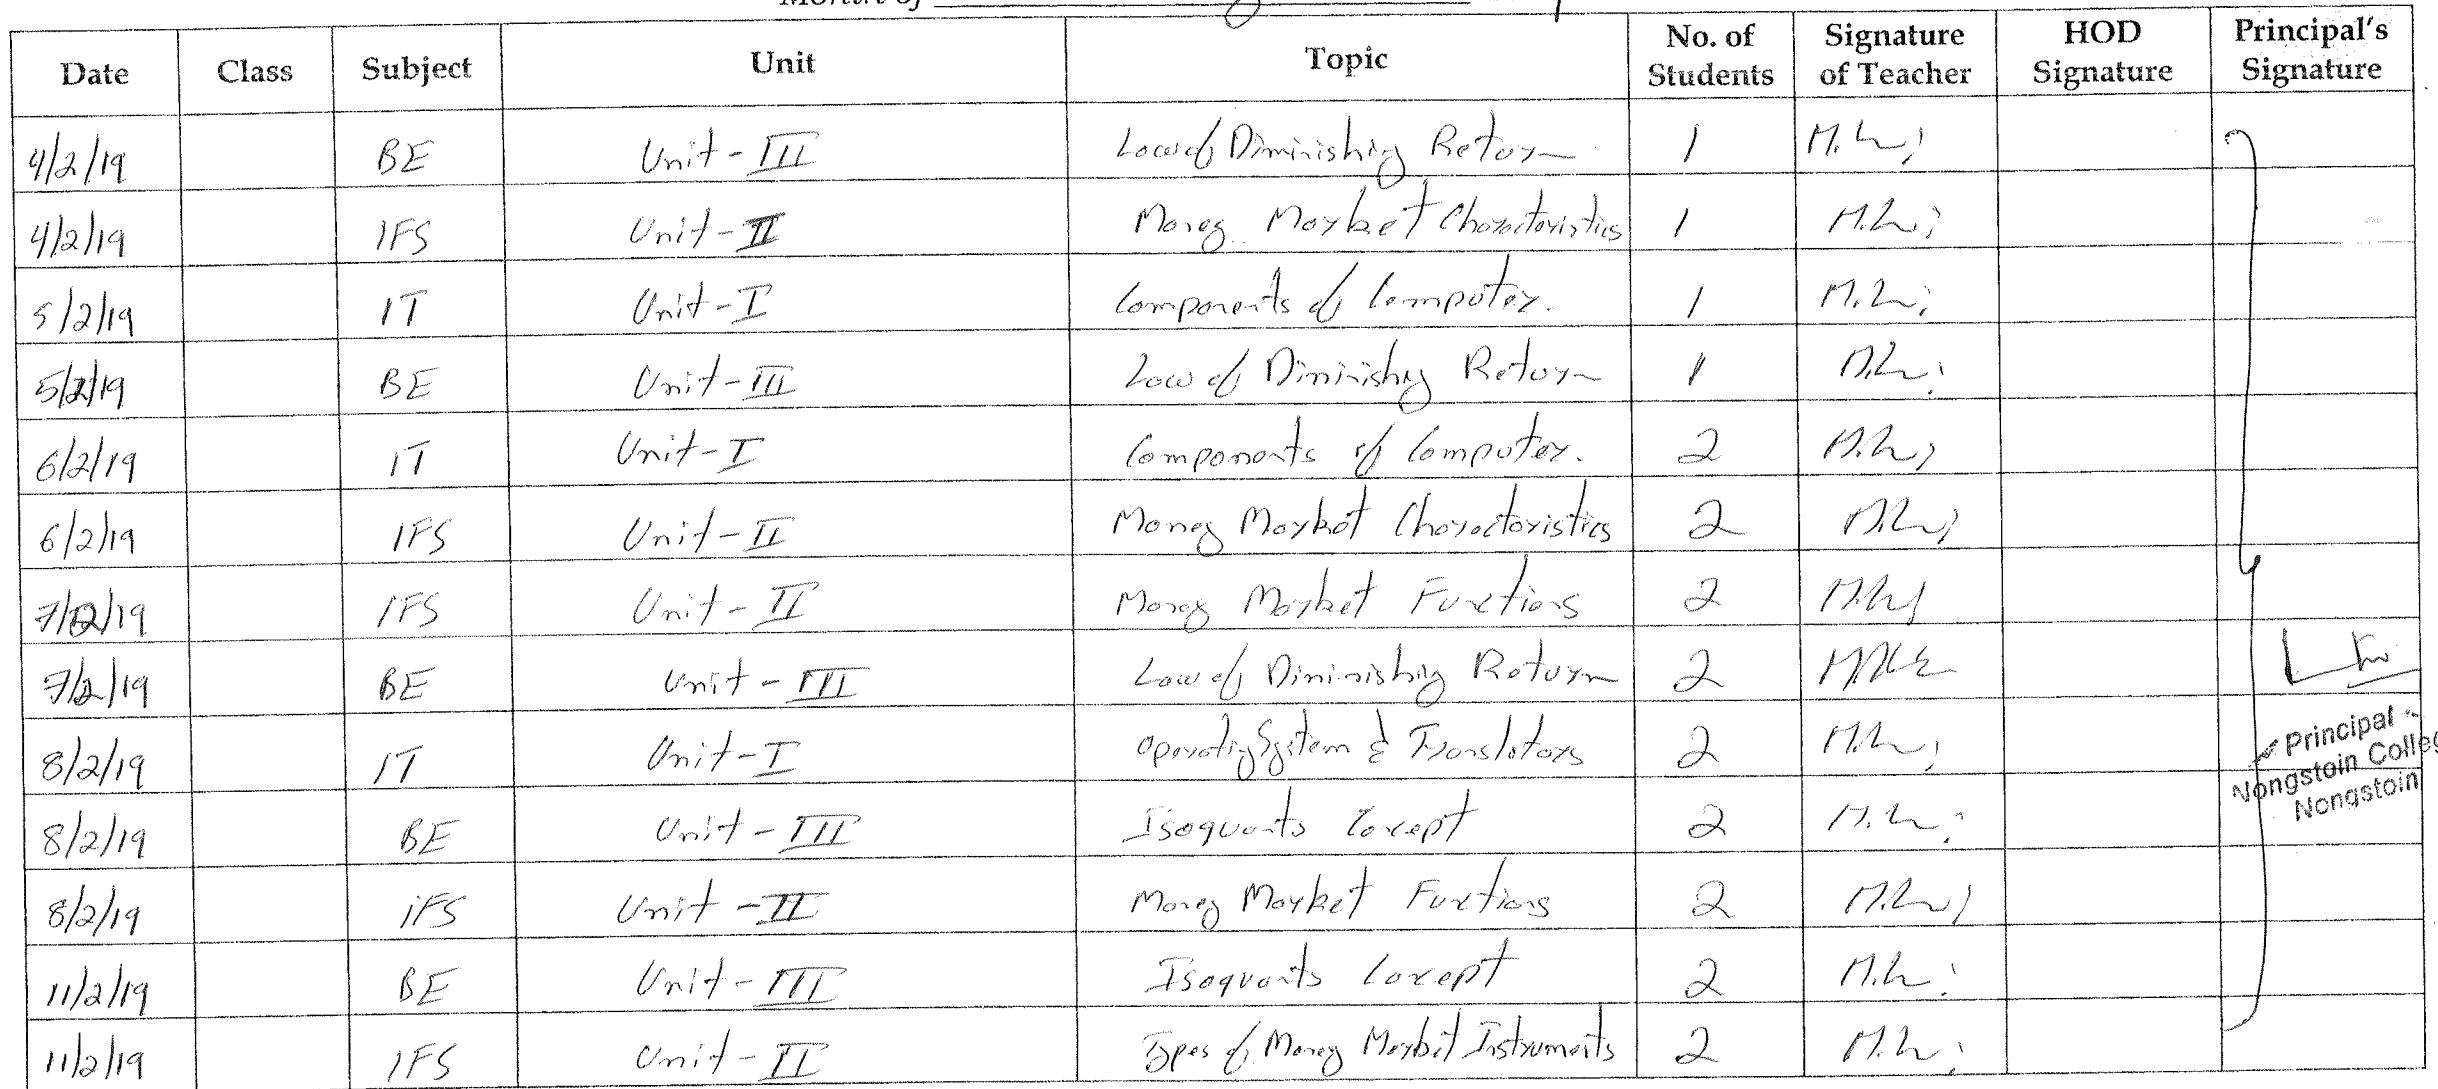 Month of
Date Class Subject Unit Topic No. of Students Signature of Teacher HOD Signature Principal's Signature
4/2/19 BE Unit - III Law of Diminishing Return 1
4/2/19 IFS Unit - II Money Market Characteristics 1
5/2/19 IT Unit - I Components of Computer. 1
5/2/19 BE Unit - III Law of Diminishing Return 1
6/2/19 IT Unit - I Components of Computer. 2
6/2/19 IFS Unit - II Money Market Characteristics 2
7/2/19 IFS Unit - II Money Market Functions 2
7/2/19 BE Unit - III Law of Diminishing Return 2
8/2/19 IT Unit - I Operating System & Translators 2
8/2/19 BE Unit - III Isoquants Concept 2
8/2/19 IFS Unit - II Money Market Functions 2
11/2/19 BE Unit - III Isoquants Concept 2
11/2/19 IFS Unit - II Types of Money Market Instruments 2
Principal
Nongstoin Colleg
Nongstoin